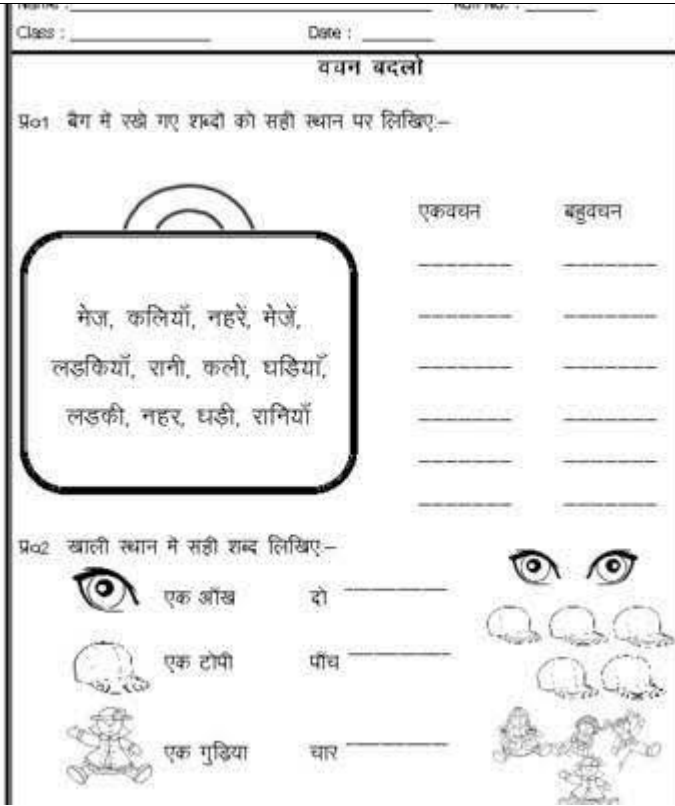 Name : Roll No. :
Class : Date :
वचन बदलो
प्र०1 बैग में रखे गए शब्दों को सही स्थान पर लिखिए:–
एकवचन बहुवचन
मेज, कलियाँ, नहरें, मेजें,
लड़कियाँ, रानी, कली, घडियाँ,
लड़की, नहर, घड़ी, रानियाँ
प्र०2 खाली स्थान में सही शब्द लिखिए:–
एक आँख दो
एक टोपी पाँच
एक गुड़िया चार